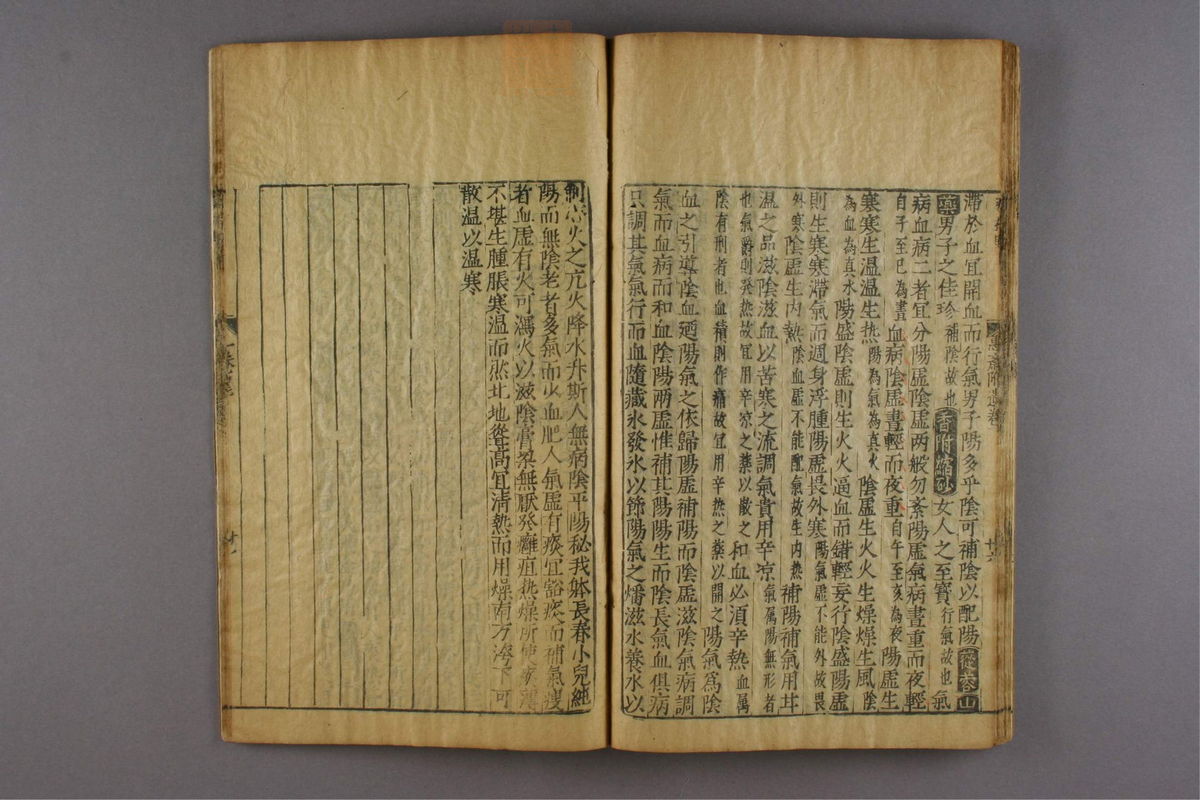 滯於血宜開血而行氣男子陽多乎陰可補陰以配陽蓯蓉山
藥男子之佳珍補陰故也香附縮砂女人之至寳行氣故也氣
病血病二者宜分陽虛陰虛两般勿紊陽虛氣病晝重而夜輕
自子至巳為晝血病陰虛晝輕而夜重自午至亥為夜陽虛生
寒寒生温温生热陽為氣為真火陰虛生火火生燥燥生風陰
為血為真水陽盛陰虛則生火火逼血而錯輕妄行陰盛陽虛
則生寒寒滯氣而週身浮腫陽虛畏外寒陽氣虛不能外故畏
外寒陰虛生内热陰血虛不能配氣故生内热補陽補氣用甘
濕之品滋陰滋血以苦寒之流調氣貴用辛凉氣属陽無形者
也氣爵則發热故宜用辛凉之藥以散之和血必湏辛熱血属
陰有刑者也血積則作痛故宜用辛热之藥以開之陽氣爲陰
血之引導陰血廼陽氣之依歸陽虛補陽而陰虛滋陰氣病調
氣而血病而和血陰陽两虛惟補其陽陽生而陰長氣血俱病
只調其氣氣行而血隨藏氷發氷以節陽氣之燔滋水養水以
制心火之亢火降水升斯人無病陰平陽秘我躰長春小兒純
陽而無陰老者多氣而少血肥人氣虛有痰宜豁痰而補氣瘦
者血虛有火可瀉火以滋陰膏粱無厭發癰疽热燥所使
不堪生腫脹寒温而然北地從高宜清熱而用燥南方下可
散温以温寒
十六